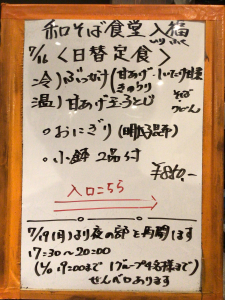 和そば食堂 入福
いりふく
7/16 〈日替定食〉
冷)ぶっかけ(甘あげ
きゅうり
そば
うどん
温)甘あげ玉子とじ
。おにぎり(明太子昆布)
。小鉢 2品付
¥880.-
入口こちら
7/19(月)より夜の部を再開します
17:30〜20:00
(L/o 19:00まで 1グループ4名様まで)
せんべロあります